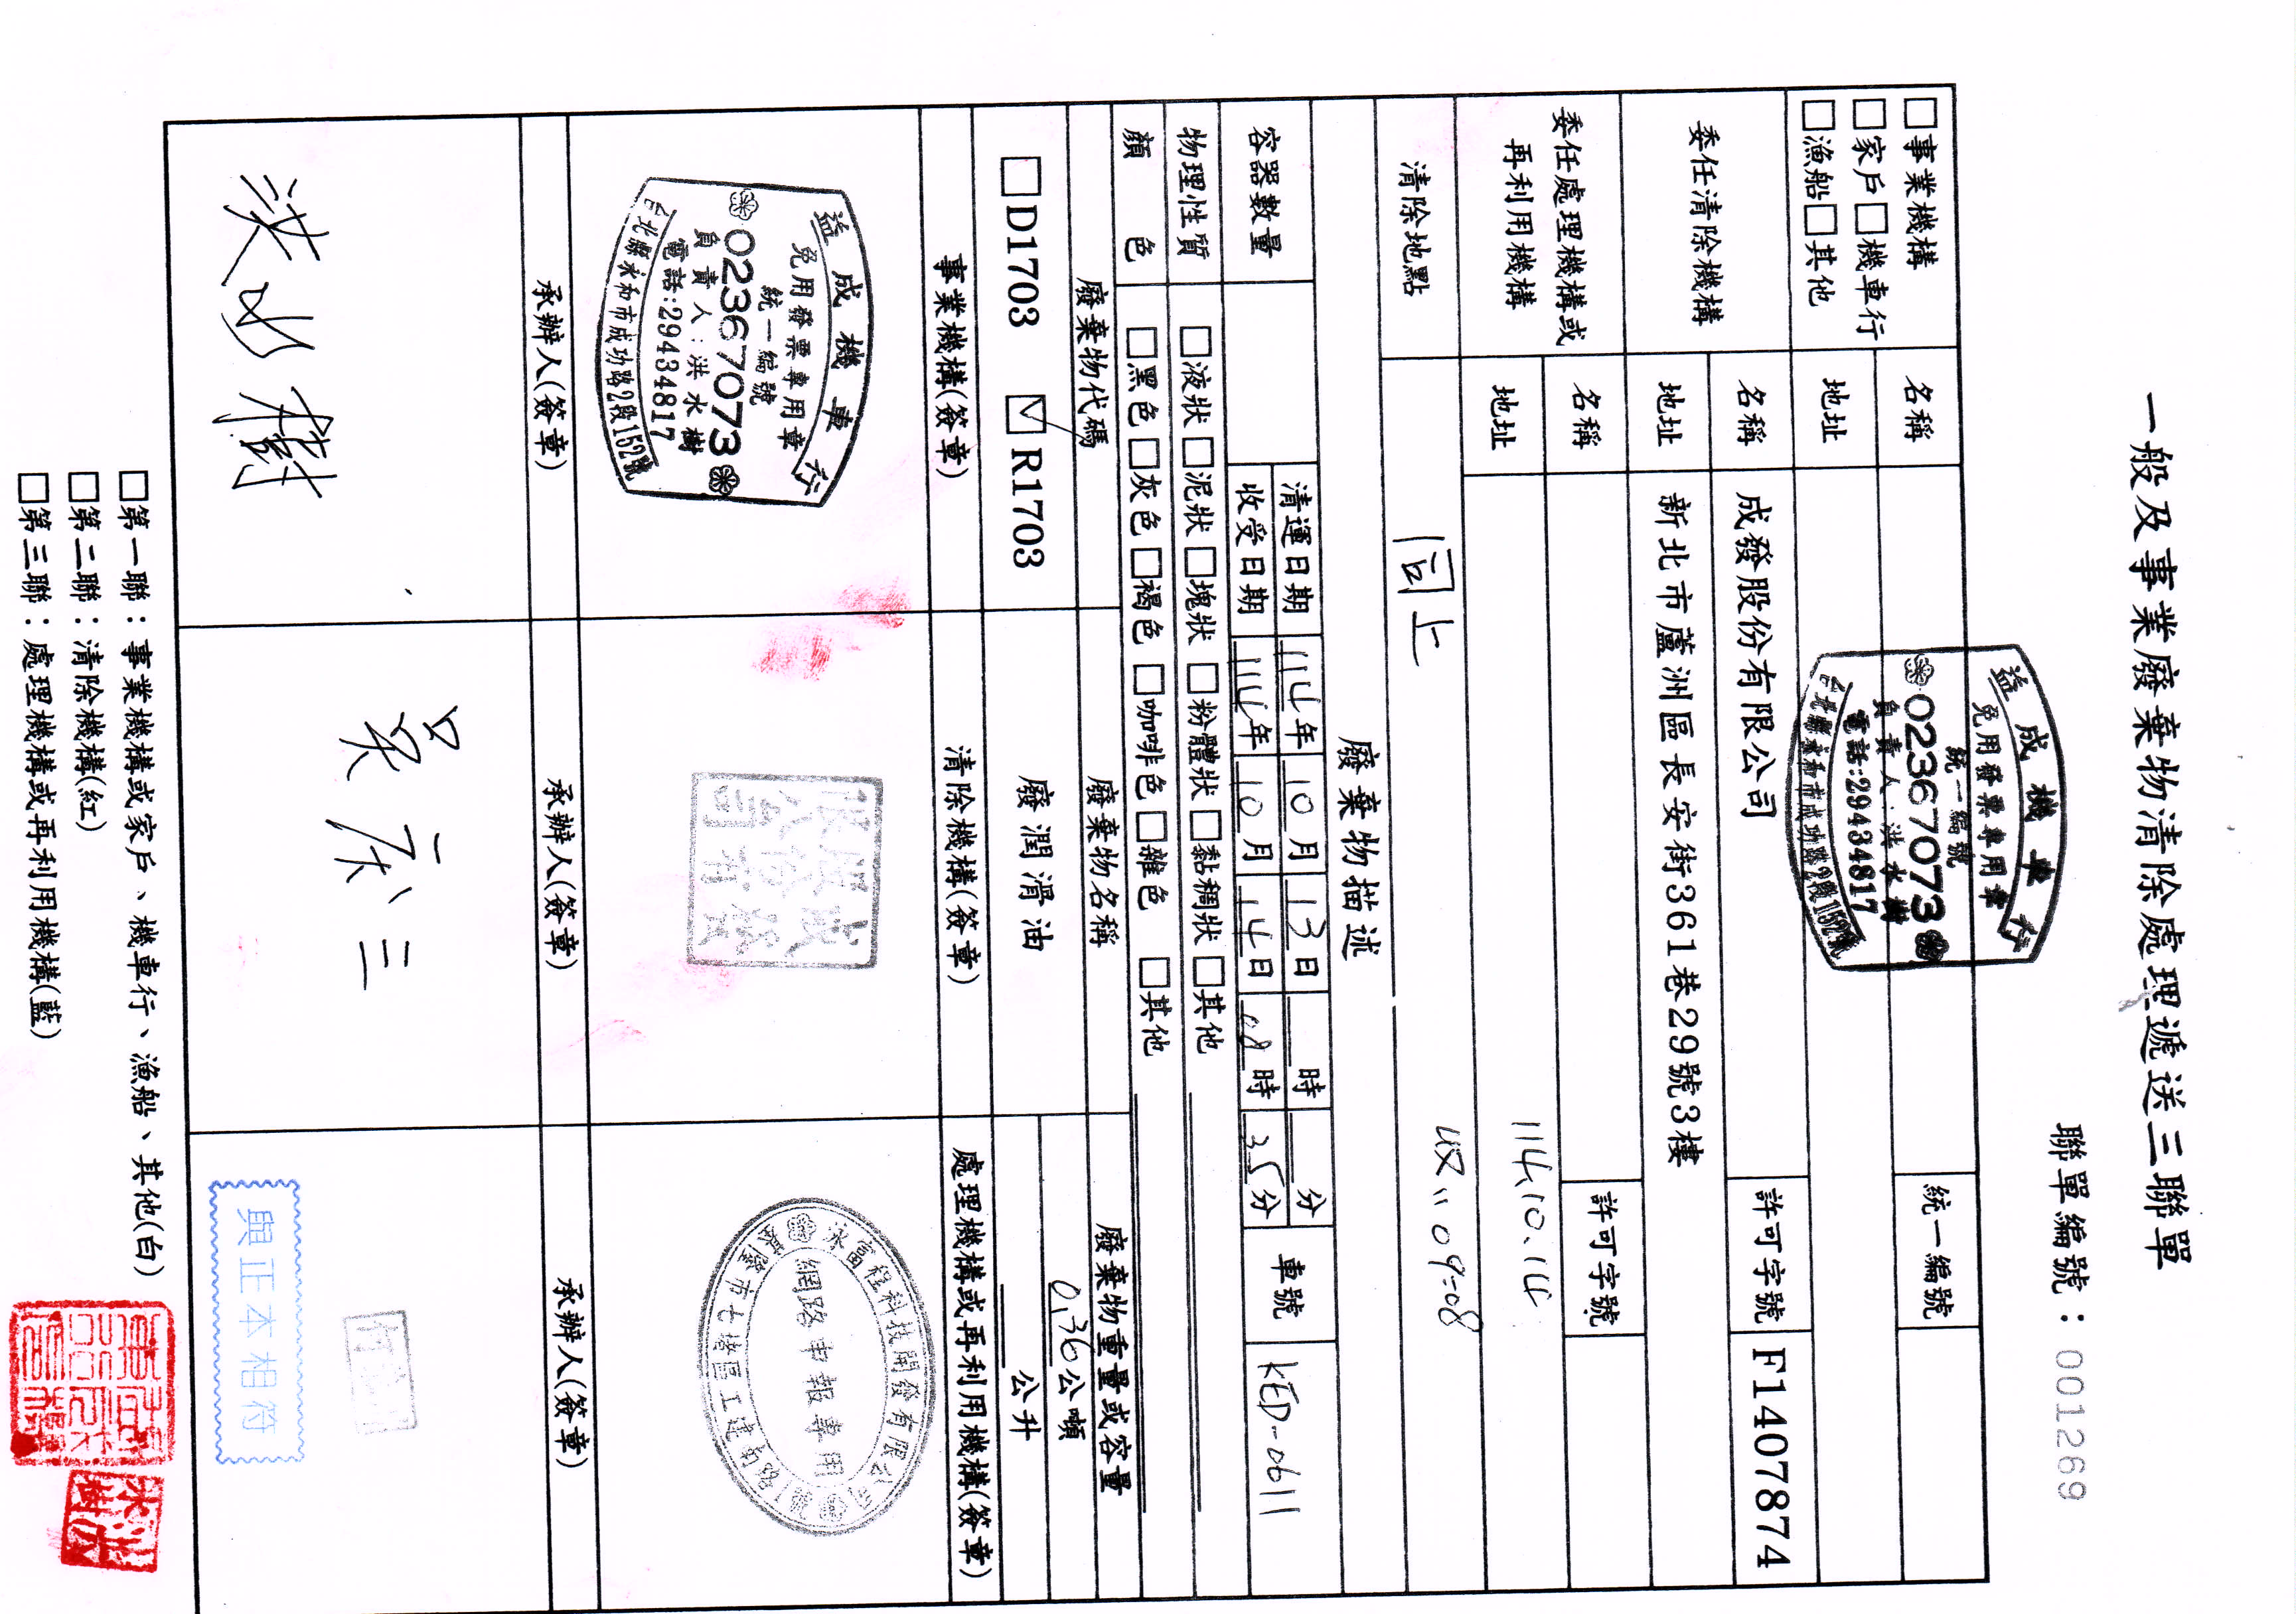 一般及事業廢棄物清除處理遞送三聯單
聯單編號：001269
□事業機構
□家戶□機車行
□漁船□其他
名稱
統一編號
地址
益成機車行
免用發票專用章
統一編號
02367073
負責人:洪水樹
電話:29434817
台北縣永和市成功路2段152號
委任清除機構
名稱
成發股份有限公司
許可字號
F1407874
地址
新北市蘆洲區長安街361巷29號3樓
委任處理機構或
再利用機構
名稱
許可字號
地址
114.10.14
清除地點
同上
收 09:08
廢棄物描述
容器數量
清運日期 114年10月13日 時 分
收受日期 114年10月14日08時35分
車號
KED-0611
物理性質
□液狀□泥狀□塊狀□粉體狀□黏稠狀□其他
顏色
□黑色□灰色□褐色□咖啡色□雜色□其他
廢棄物代碼
廢棄物名稱
廢棄物重量或容量
□D1703 ☑R1703
廢潤滑油
0.36公噸
公升
事業機構(簽章)
清除機構(簽章)
處理機構或再利用機構(簽章)
益成機車行
免用發票專用章
統一編號
02367073
負責人:洪水樹
電話:29434817
台北縣永和市成功路2段152號
成發股份有限公司
富程科技開發有限公司
網路申報專用
基隆市七堵區工建
承辦人(簽章)
承辦人(簽章)
承辦人(簽章)
洪水樹
吳慶三
與正本相符
□第一聯：事業機構或家戶、機車行、漁船、其他(白)
□第二聯：清除機構(紅)
□第三聯：處理機構或再利用機構(藍)